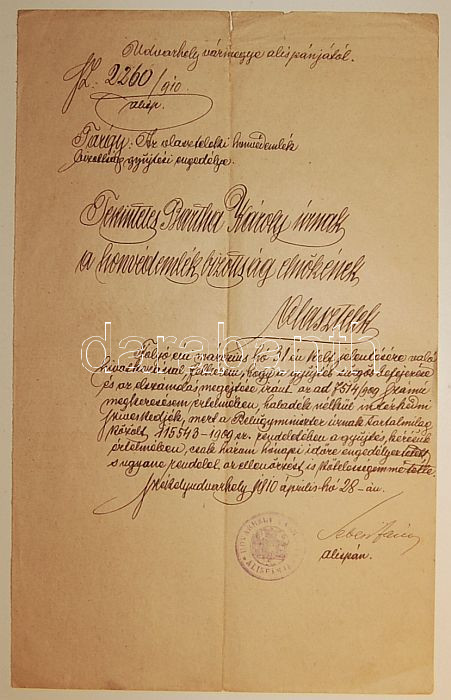 Udvarhely vármegye alispánjától.
Sz. 2260/910
alisp.
Tárgy: Az olaszteleki honvédemlék
bizottság gyűjtési engedélye.
Tekintetes Bartha Károly úrnak
a honvédemlék bizottság elnökének
Olasztelek
Folyó évi március hó 31 én kelt jelentésére való
hivatkozással felhívom, hogy a gyűjtés végső befejezése
és az elszámolás megejtése iránt az ad 7514/909 számú
megkeresésem értelmében, haladék nélkül intézkedni
szíveskedjék, mert a Belügyminiszter úrnak
közölt 115543-1909 sz. rendeletében a gyűjtés, kérésük
értelmében, csak három hónapi időre engedélyeztetett
s ugyane rendelet az ellenőrzést is kötelességemmé tette.
Székelyudvarhely 1910 április hó 28-án.
alispán.
darabanth